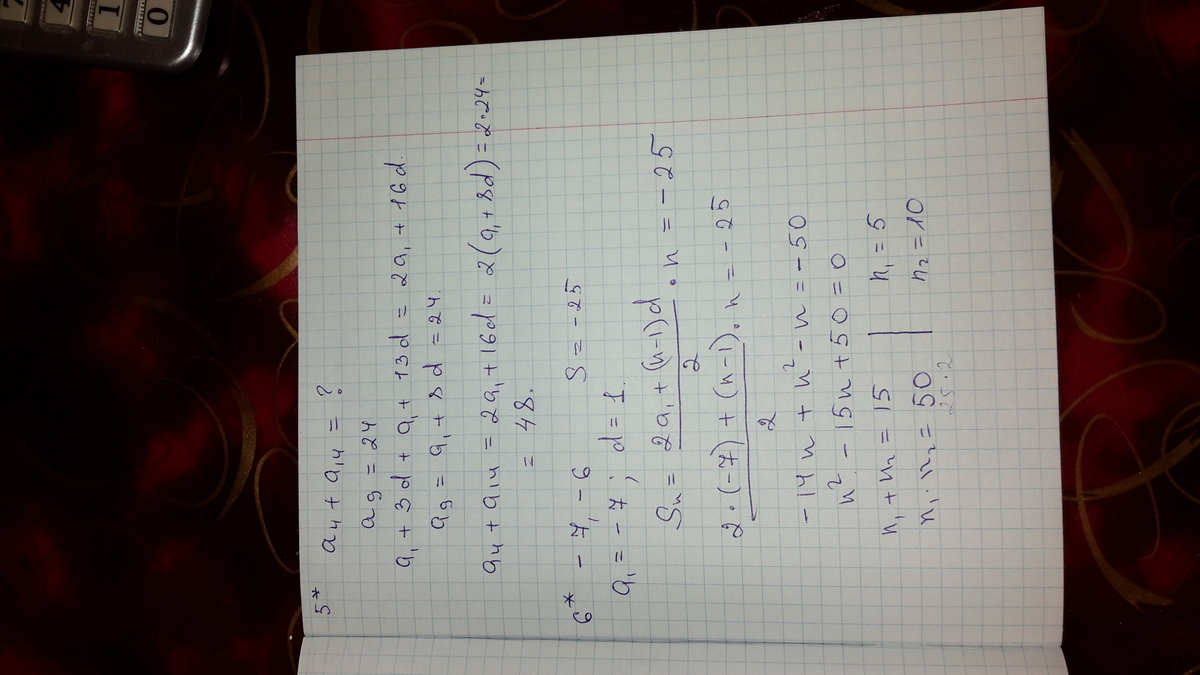 5* a₄ + a₁₄ = ?
a₉ = 24
a₁ + 3d + a₁ + 13d = 2a₁ + 16d.
a₉ = a₁ + 8d = 24.
a₄ + a₁₄ = 2a₁ + 16d = 2(a₁ + 8d) = 2·24 =
= 48.
6* -7, -6 S = -25
a₁ = -7; d = 1.
Sₙ = (2a₁ + (n-1)d)/2 · n = -25
(2·(-7) + (n-1))/2 · n = -25
-14n + n² - n = -50
n² - 15n + 50 = 0
n₁ + n₂ = 15 | n₁ = 5
n₁ · n₂ = 50 | n₂ = 10
25·2
7
4
1
0